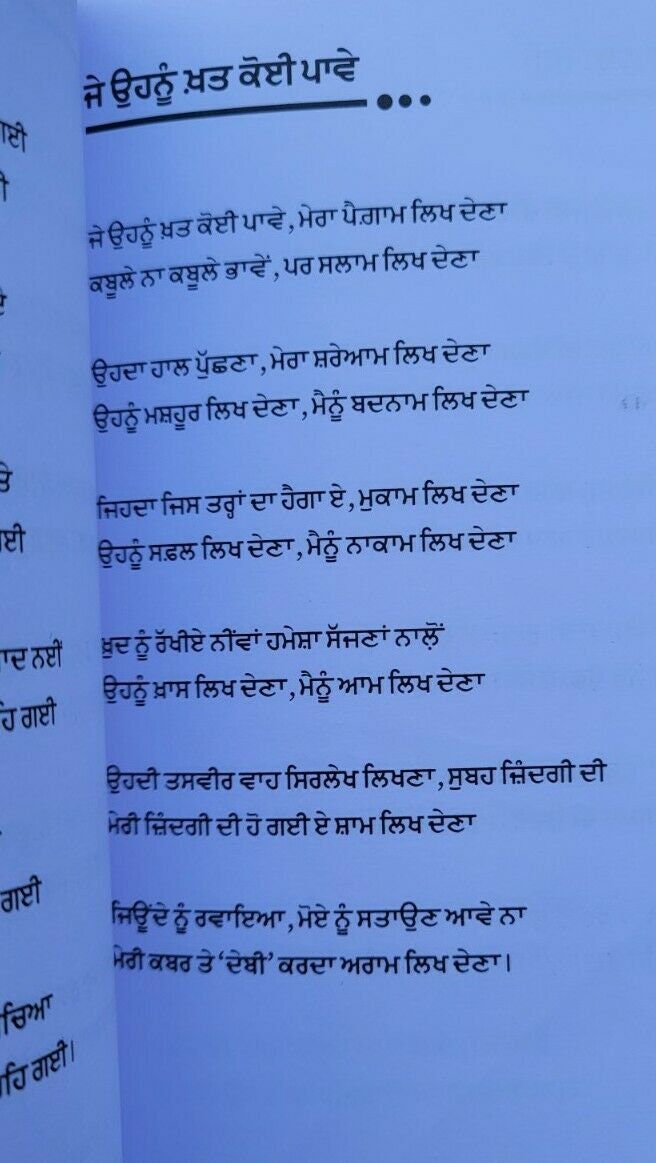 ਜੇ ਉਹਨੂੰ ਖ਼ਤ ਕੋਈ ਪਾਵੇ
ਜੇ ਉਹਨੂੰ ਖ਼ਤ ਕੋਈ ਪਾਵੇ, ਮੇਰਾ ਪੈਗ਼ਾਮ ਲਿਖ ਦੇਣਾ
ਕਬੂਲੇ ਨਾ ਕਬੂਲੇ ਭਾਵੇਂ, ਪਰ ਸਲਾਮ ਲਿਖ ਦੇਣਾ
ਉਹਦਾ ਹਾਲ ਪੁੱਛਣਾ, ਮੇਰਾ ਸ਼ਰੇਆਮ ਲਿਖ ਦੇਣਾ
ਉਹਨੂੰ ਮਸ਼ਹੂਰ ਲਿਖ ਦੇਣਾ, ਮੈਨੂੰ ਬਦਨਾਮ ਲਿਖ ਦੇਣਾ
ਜਿਹਦਾ ਜਿਸ ਤਰ੍ਹਾਂ ਦਾ ਹੈਗਾ ਏ, ਮੁਕਾਮ ਲਿਖ ਦੇਣਾ
ਉਹਨੂੰ ਸਫ਼ਲ ਲਿਖ ਦੇਣਾ, ਮੈਨੂੰ ਨਾਕਾਮ ਲਿਖ ਦੇਣਾ
ਖ਼ੁਦ ਨੂੰ ਰੱਖੀਏ ਨੀਂਵਾਂ ਹਮੇਸ਼ਾ ਸੱਜਣਾਂ ਨਾਲੋਂ
ਉਹਨੂੰ ਖ਼ਾਸ ਲਿਖ ਦੇਣਾ, ਮੈਨੂੰ ਆਮ ਲਿਖ ਦੇਣਾ
ਉਹਦੀ ਤਸਵੀਰ ਵਾਹ ਸਿਰਲੇਖ ਲਿਖਣਾ, ਸੁਬਹ ਜ਼ਿੰਦਗੀ ਦੀ
ਮੇਰੀ ਜ਼ਿੰਦਗੀ ਦੀ ਹੋ ਗਈ ਏ ਸ਼ਾਮ ਲਿਖ ਦੇਣਾ
ਜਿਊਂਦੇ ਨੂੰ ਰਵਾਇਆ, ਮੋਏ ਨੂੰ ਸਤਾਉਣ ਆਵੇ ਨਾ
ਮੇਰੀ ਕਬਰ ਤੇ 'ਦੇਬੀ' ਕਰਦਾ ਅਰਾਮ ਲਿਖ ਦੇਣਾ।